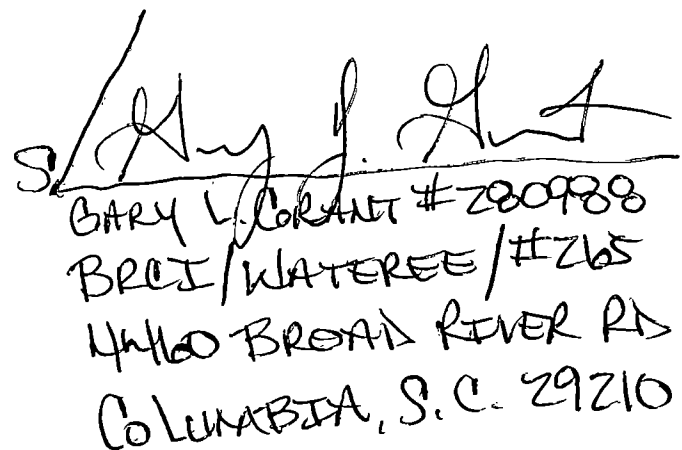 S/ Gary L. Grant
GARY L. GRANT #280988
BRCI/WATEREE/#265
4460 BROAD RIVER RD
COLUMBIA, S.C. 29210